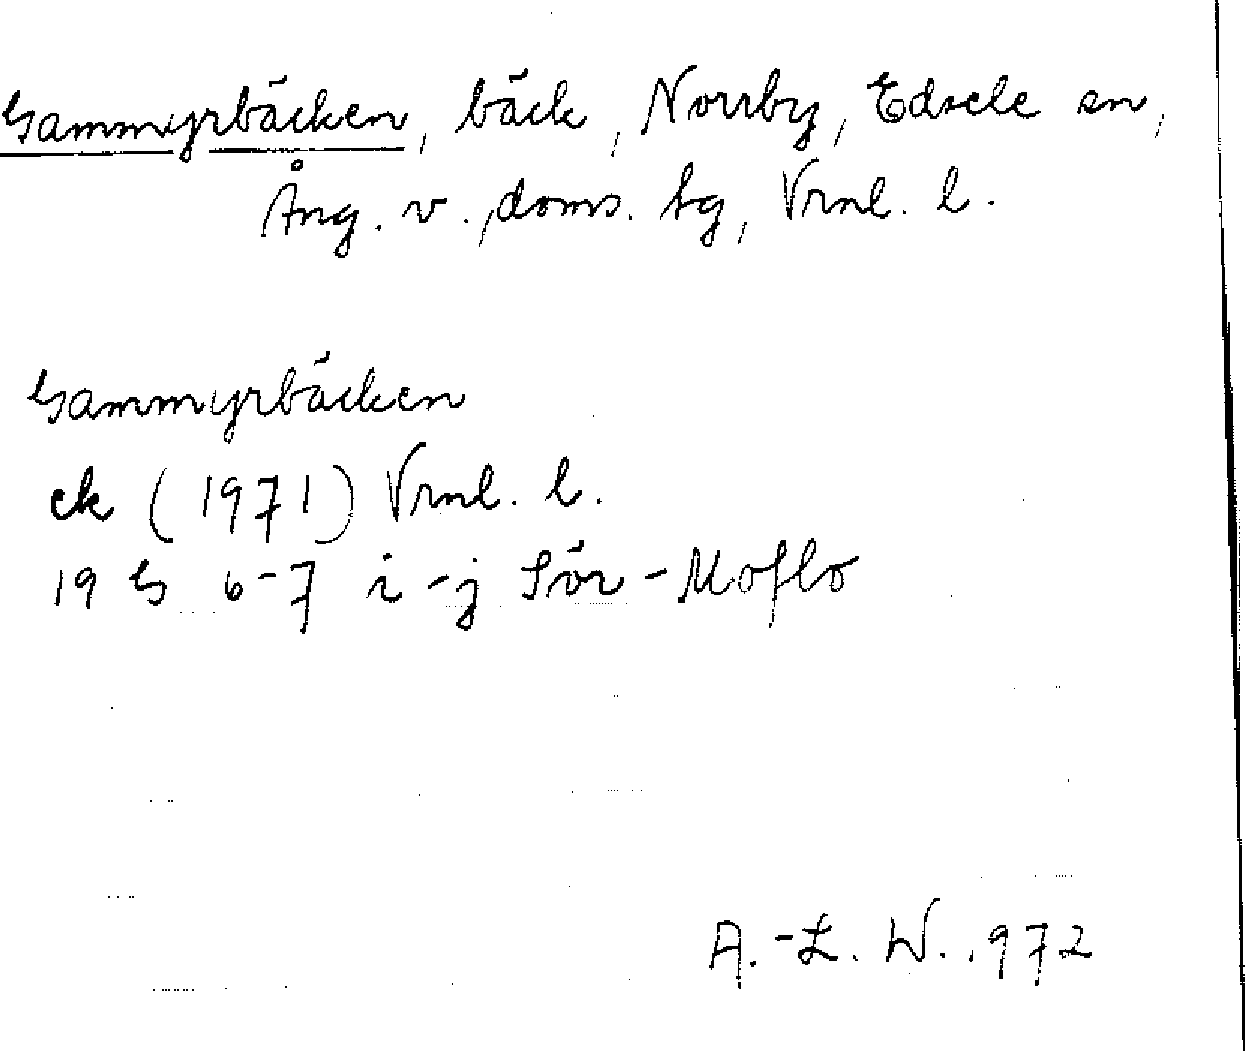 Gammyrbäcken, bäck, Norrby, Edsele sn,
Ång. v., doms. tg, Vrnl. l.
Gammyrbäcken
ek (1971) Vrnl. l.
19 G 6-7 i-j Sör-Moflo
A.-L. W. .972